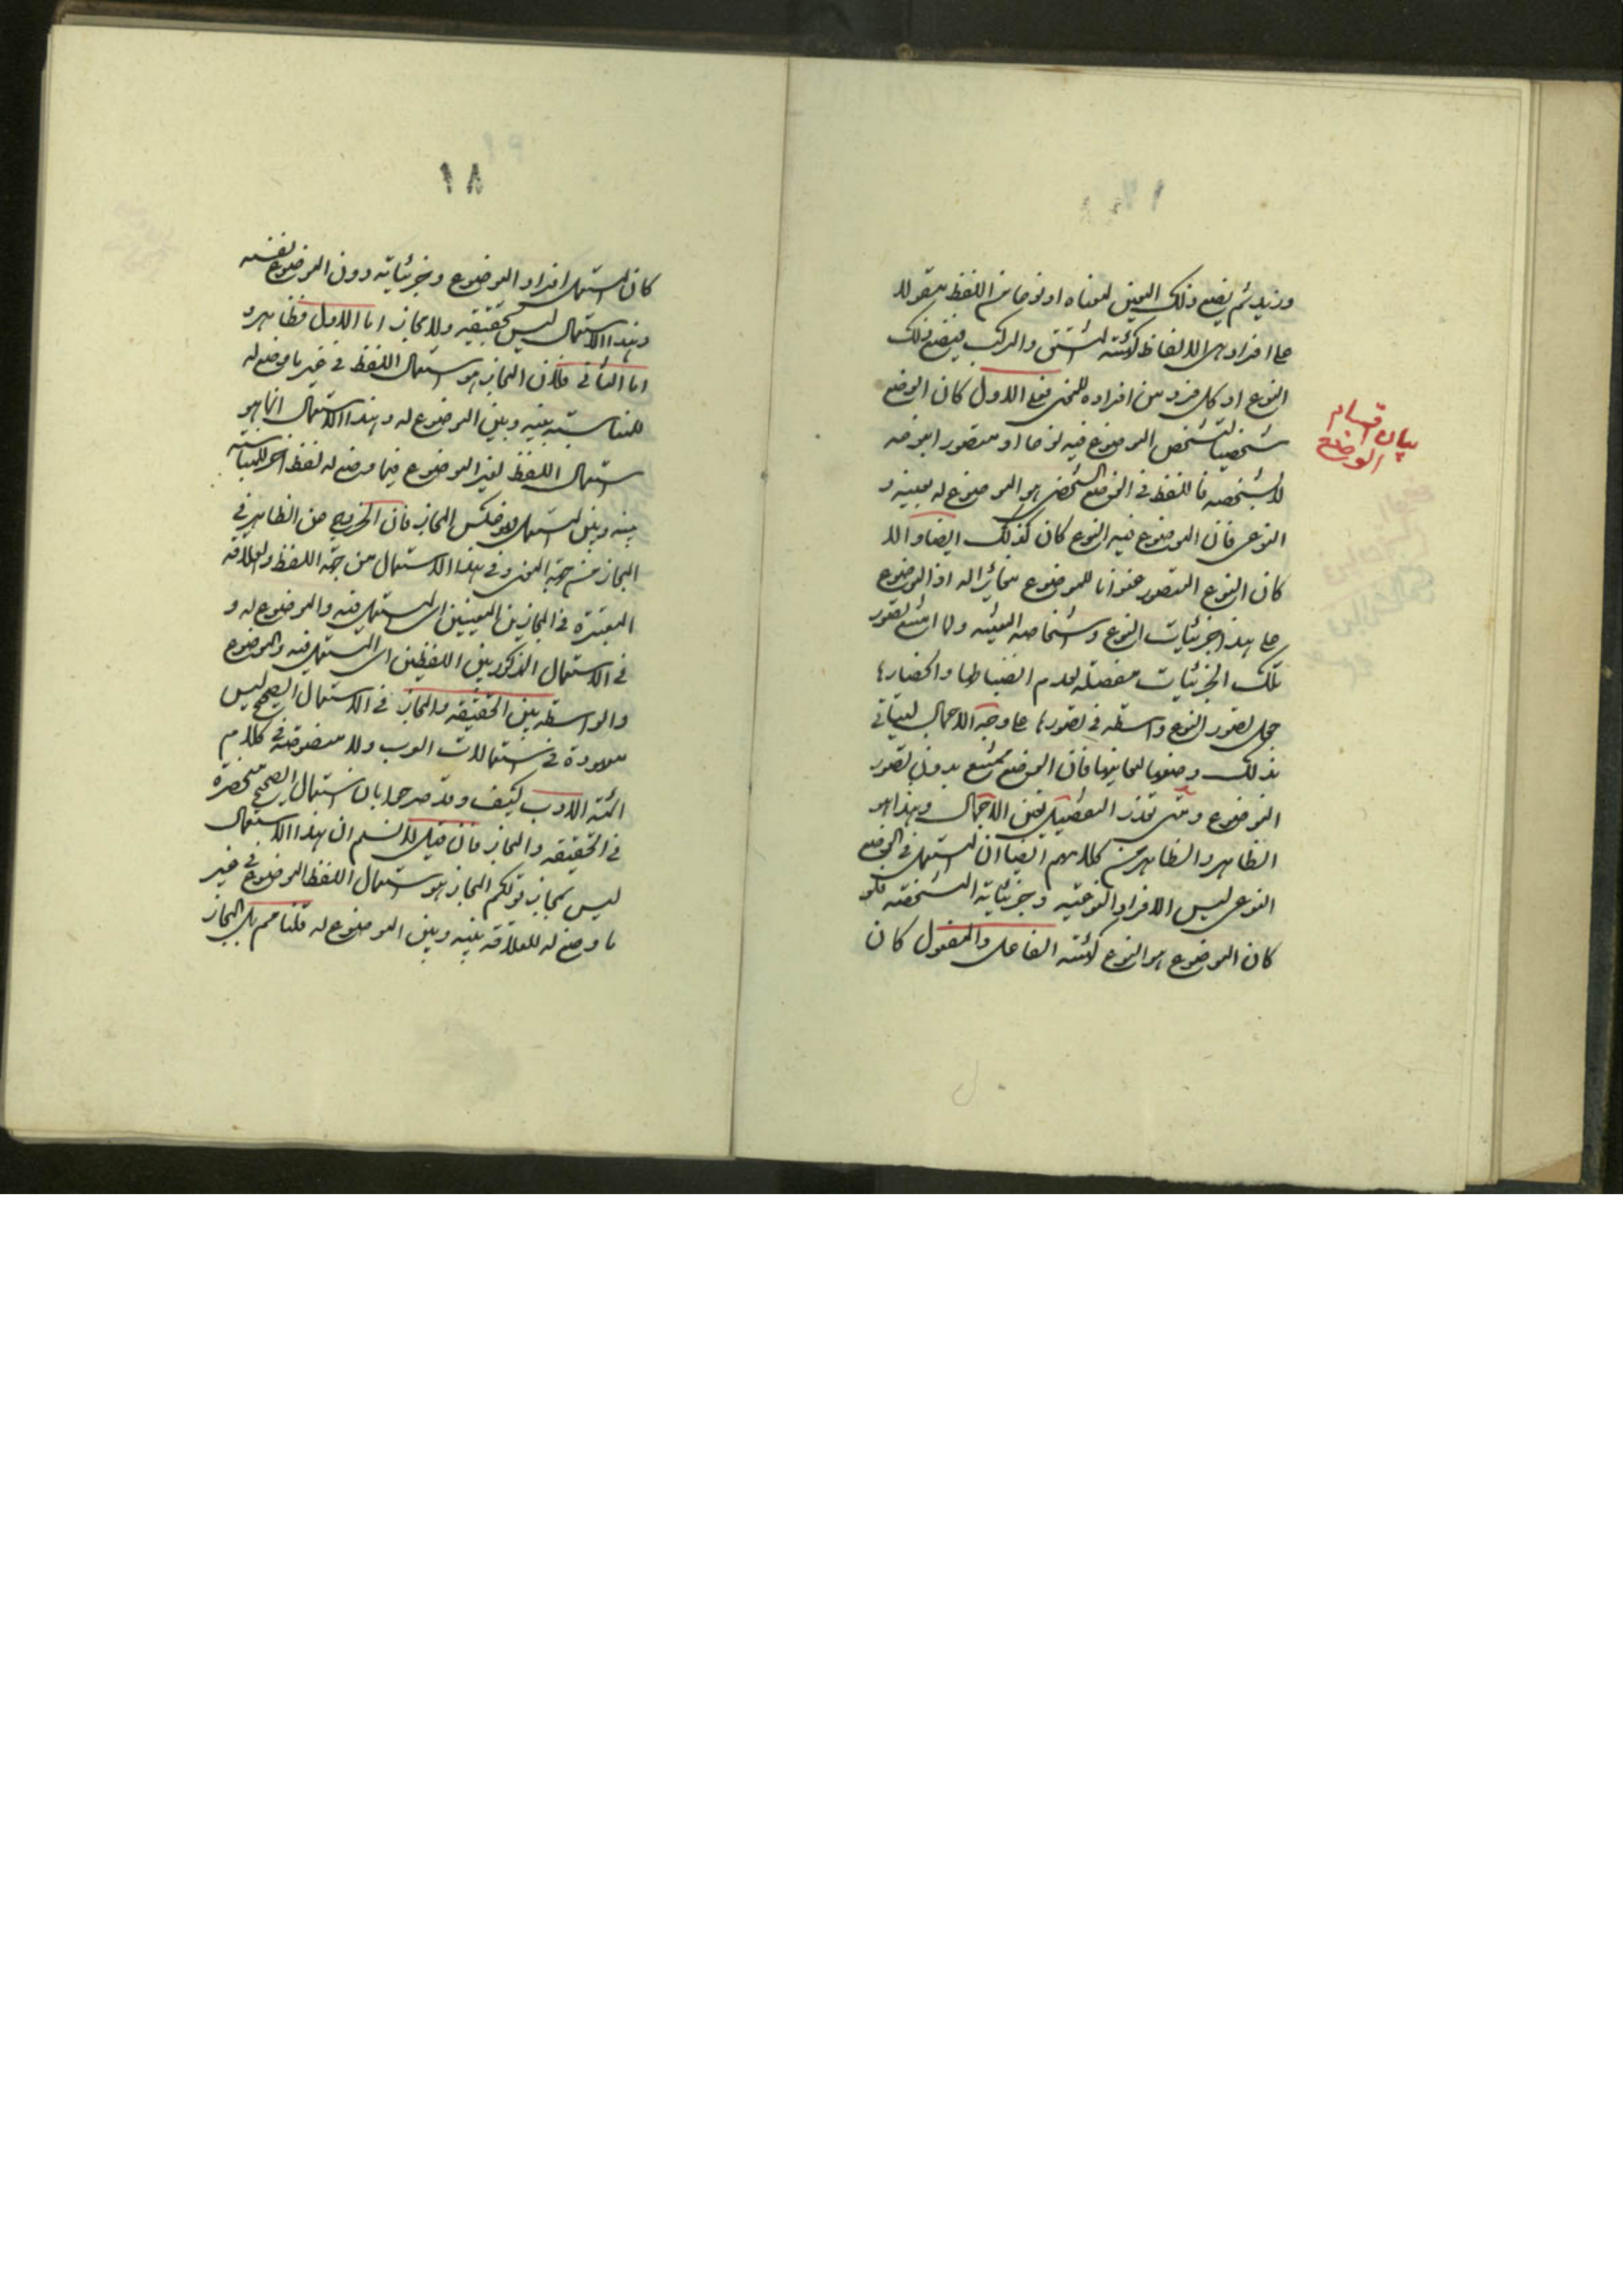 وزيد ثم يضع ذلك المعين لمعناه او نوعا من اللفظ مقولا
على افراد هى الالفاظ كهيئة المشتق والمركب فيضع ذلك
النوع او كل فرد من افراده للمعنى فعلى الاول كان الوضع
شخصيا لتشخص الموضوع فيه نوعا او متصور الوضه
لا بشخصه فاللفظ فى الوضع الشخصى هو الموضوع له بعينه و
النوعى فان الموضوع فيه النوع كان كذلك ايضا والا
كان النوع المتصور عنوانا للموضوع مغايرا له اذ الموضوع
على هذا جزئيات النوع واشخاصه المعينه ولما امتنع تصور
تلك الجزئيات مفصلة لعدم انضباطها وانحصارها
جعل تصور النوع واسطه فى تصورها على وجه الاجمال ليتأتى
بذلك وضعها لمعانيها فان الوضع ممتنع بدون تصور
الموضوع ومتى تعذر التفصيل تعين الاجمال وهذا هو
الظاهر والظاهر من كلامهم ايضا ان المستعمل فى الوضع
النوعى ليس الا افراد النوعيه وجزئياته المشخصة فلو
كان الموضوع هو النوع كهيئة الفاعل والمفعول كان
بيان اقسام
الوضع
١٨
كان المستعمل افراد الموضوع وجزئياته دون الموضوع نفسه
وهذا الاستعمال ليس بحقيقيه ولا مجاز اما الاول فظاهر و
اما الثانى فلان المجاز هو استعمال اللفظ فى غير ما وضع له
للمناسبة بينه وبين الموضوع له وهذا الاستعمال انما هو
استعمال اللفظ لغير الموضوع فيما وضع له لفظ آخر للمناسبة
بينه وبين المستعمل هو عكس المجاز فان الخروج عن الظاهر فى
المجاز من جهة المعنى وفى هذا الاستعمال من جهة اللفظ والعلاقة
المعتبرة فى المجاز بين المعنيين اى المستعمل فيه والموضوع له و
فى الاستعمال المذكور بين اللفظين اى المستعمل فيه والموضوع
والواسطه بين الحقيقه والمجاز فى الاستعمال الصحيح ليس
معهودة فى استعمالات العرب ولا منصوصة فى كلام
ائمة الادب كيف وقد صرحوا بان استعمال الصحيح منحصرة
فى الحقيقه والمجاز فان قيل لا نسلم ان هذا الاستعمال
ليس بمجاز قولكم المجاز هو استعمال اللفظ الموضوع فى غير
ما وضع له للعلاقه بينه وبين الموضوع له قلنا مم بل المجاز